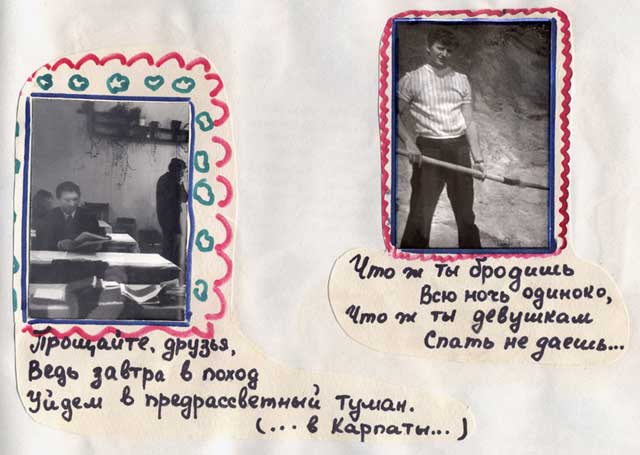 Прощайте, друзья,
Ведь завтра в поход
Уйдем в предрассветный туман.
(... в Карпаты...)
Что ж ты бродишь
Всю ночь одиноко,
Что ж ты девушкам
Спать не даешь...